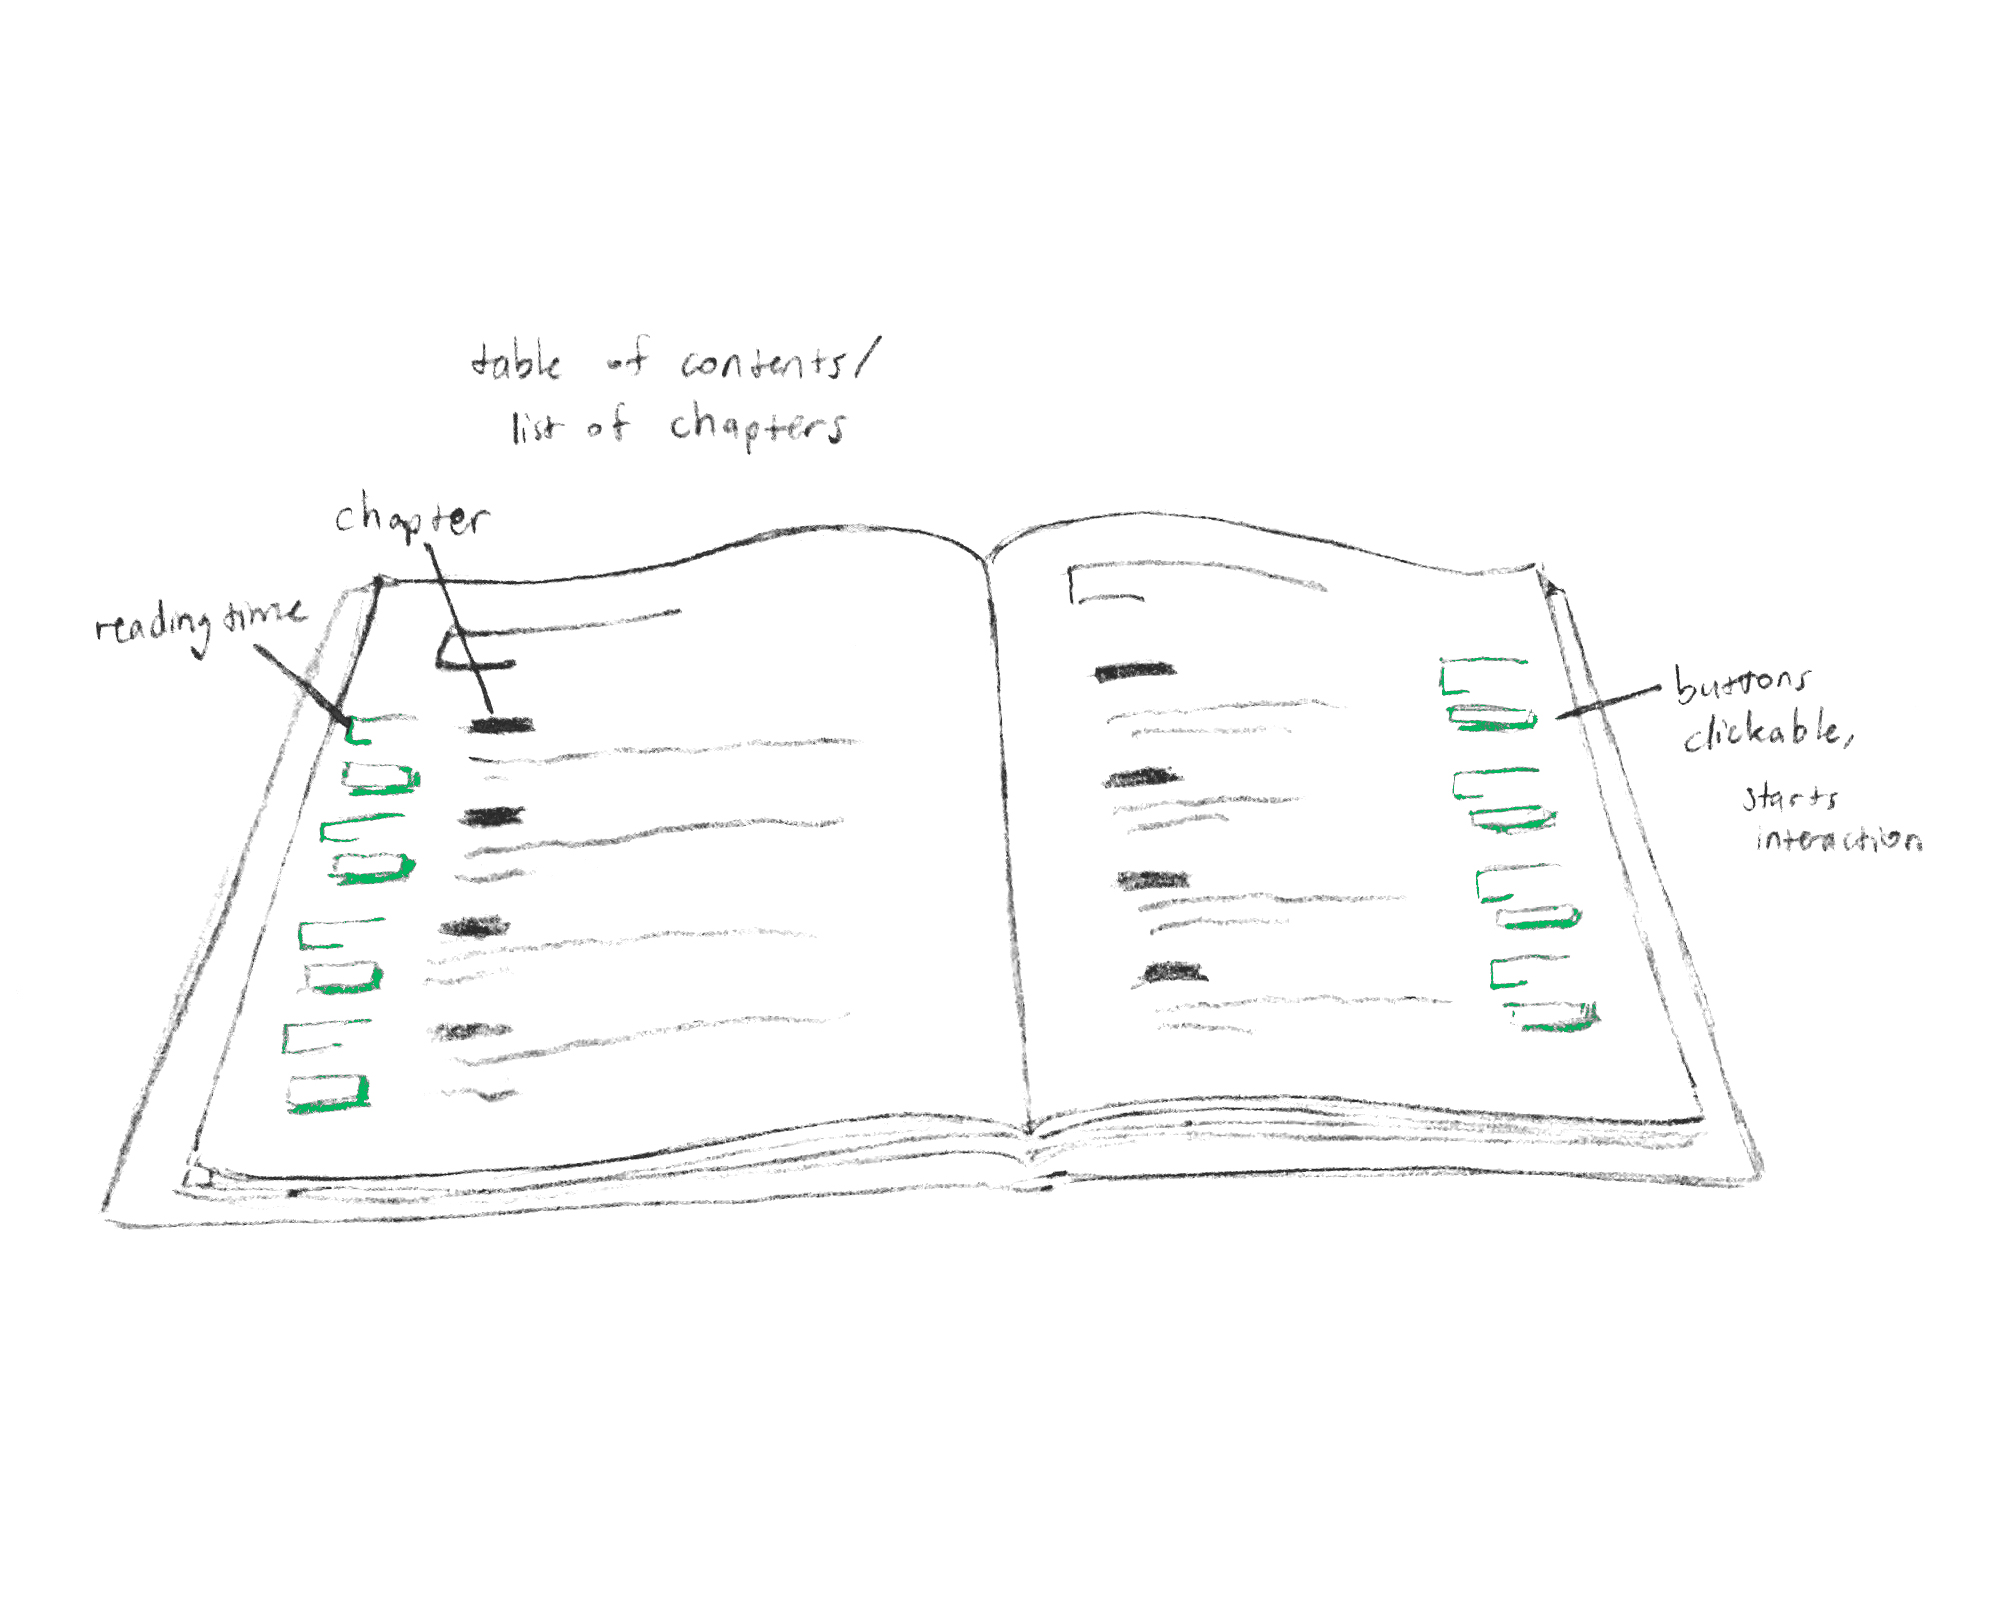 table of contents/
list of chapters
chapter
reading time
buttons
clickable,
starts
interaction